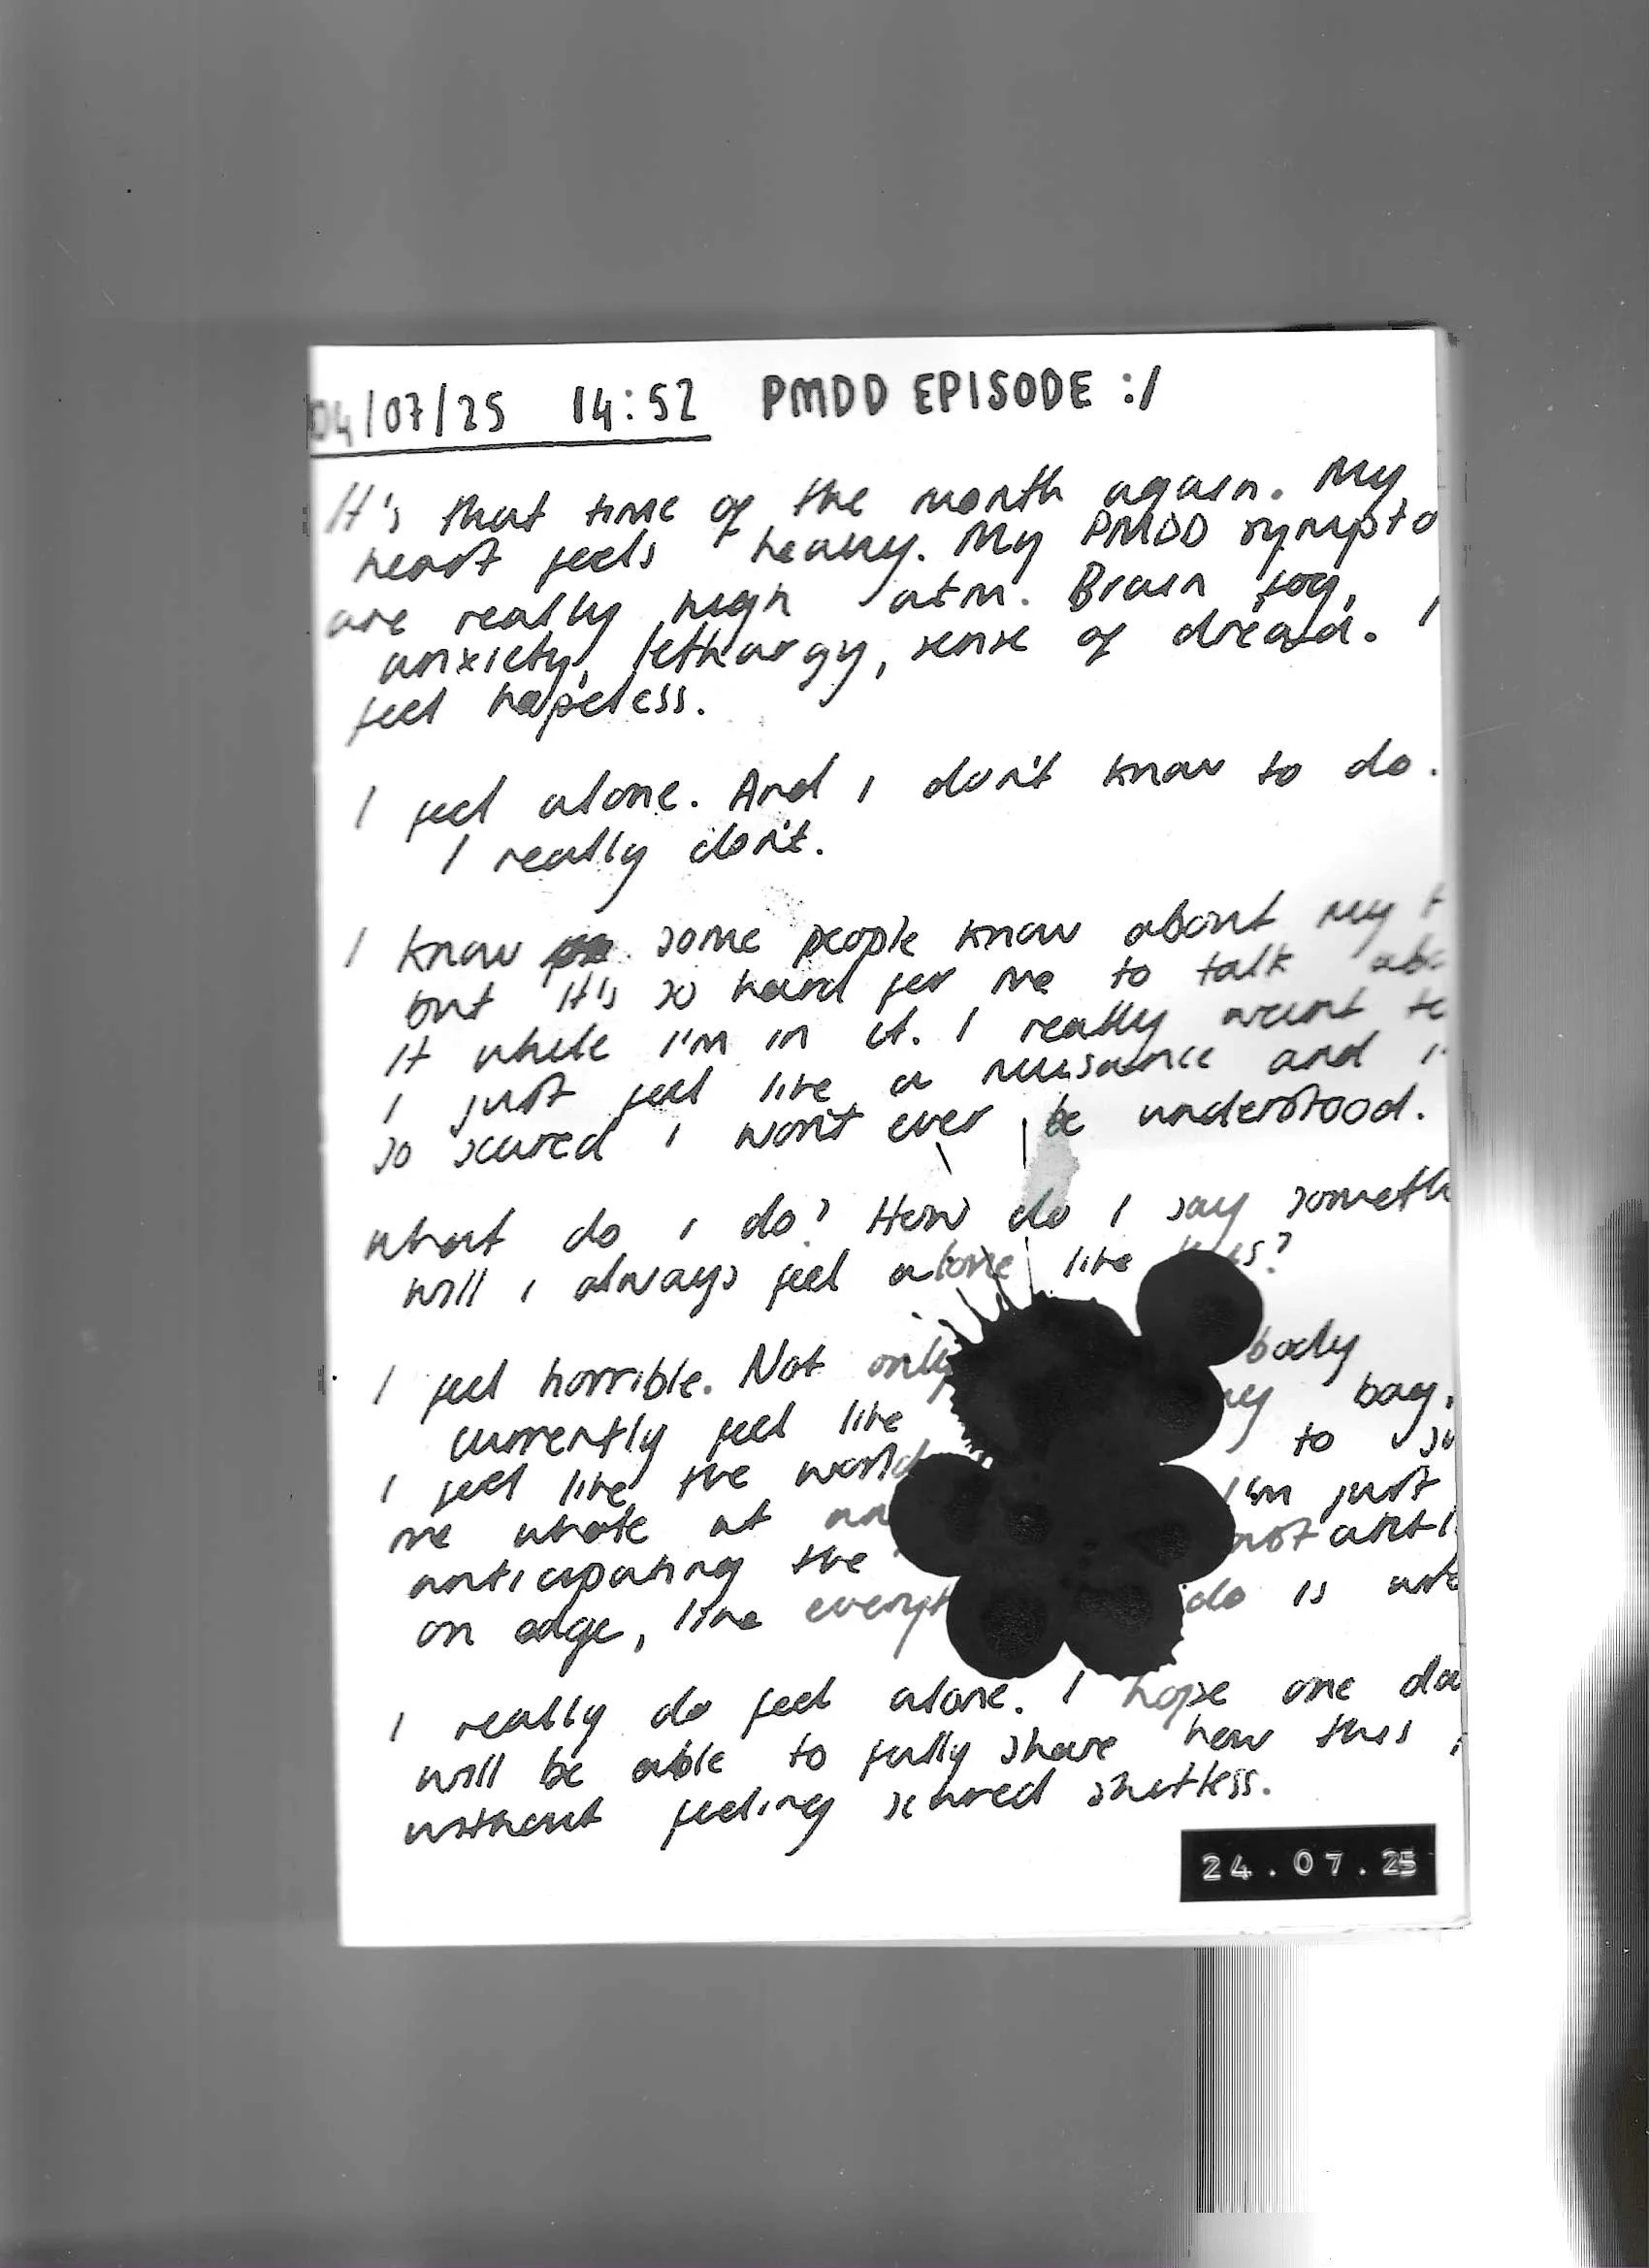 04/07/25 14:52 PMDD EPISODE :/
It's that time of the month again. My
heart feels heavy. My PMDD sympto
are really high atm. Brain fog,
anxiety, lethargy, sense of dread. I
feel hopeless.
I feel alone. And I don't know to do.
I really don't.
I know some people know about my
but it's so hard for me to talk abo
it while I'm in it. I really want to
I just feel like a nuisance and I
so scared I won't ever be understood.
what do I do? How do I say someth
will I always feel alone like this?
I feel horrible. Not only body
currently feel like bag.
I feel like the world to
me whole at I'm just
anticipating the not anti
on edge, like everyt do is
I really do feel alone. I hope one da
will be able to fully share how this
without feeling scared shitless.
24.07.25